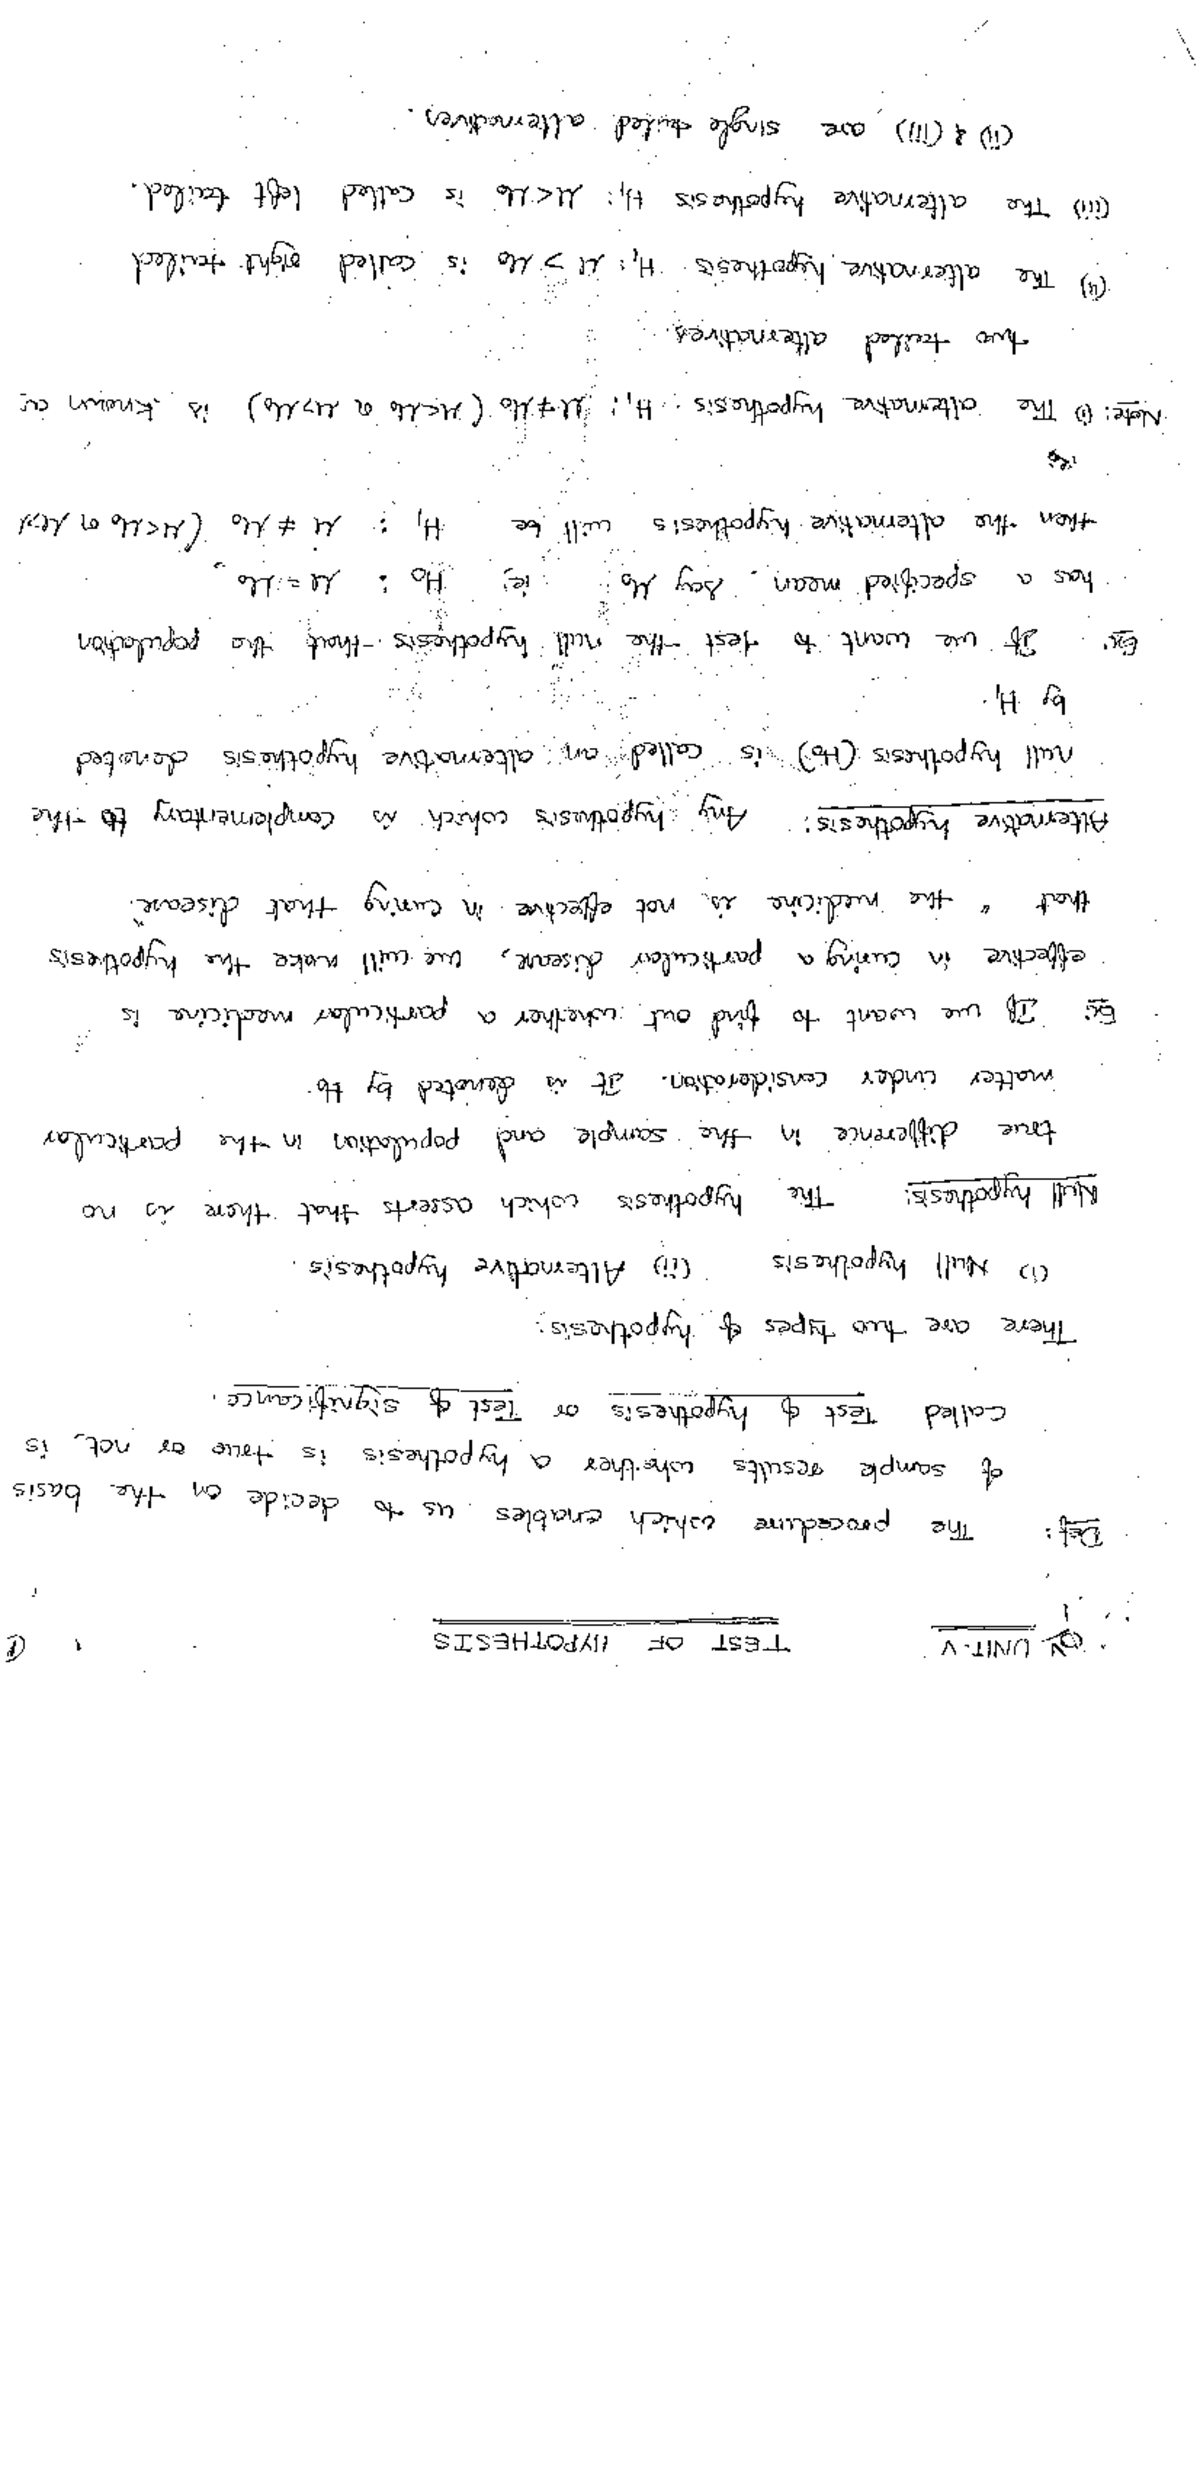 UNIT-V TEST OF HYPOTHESIS 1
Def: The procedure which enables us to decide on the basis
of sample results whether a hypothesis is true or not, is
called Test of hypothesis or Test of significance.
There are two types of hypothesis:
(i) Null hypothesis (ii) Alternative hypothesis.
Null hypothesis: The hypothesis which asserts that there is no
true difference in the sample and population in the particular
matter under consideration. It is denoted by H0.
Ex: If we want to find out whether a particular medicine is
effective in curing a particular disease, we will make the hypothesis
that "the medicine is not effective in curing that disease".
Alternative hypothesis: Any hypothesis which is complementary to the
null hypothesis (H0) is called an alternative hypothesis denoted
by H1.
Ex: If we want to test the null hypothesis that the population
has a specified mean, say μ0 ie; H0 : μ = μ0,
then the alternative hypothesis will be H1 : μ ≠ μ0 (μ<μ0 or μ>
Note: (i) The alternative hypothesis H1: μ≠μ0 (μ<μ0 or μ>μ0) is known as
two tailed alternatives.
(ii) The alternative hypothesis H1: μ > μ0 is called right tailed
(iii) The alternative hypothesis H1: μ<μ0 is called left tailed.
(ii) & (iii) are single tailed alternatives.